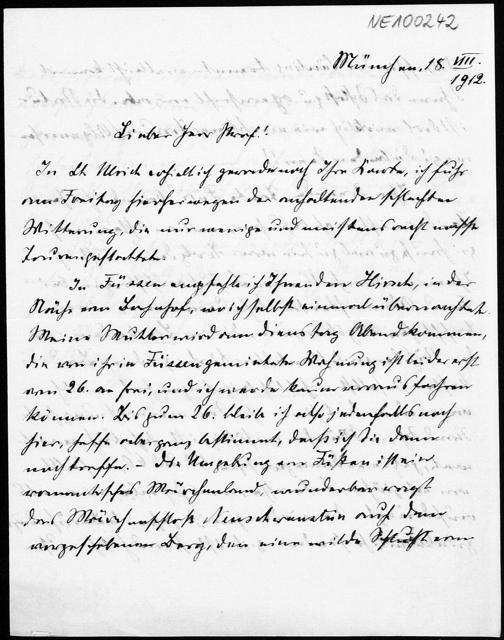 NE100242
München, 18. VIII. 1912.
Lieber Herr Prof!
In St. Ulrich erhielt ich gerade noch Ihre Karte, ich fuhr
am Freitag hierher wegen der anhaltenden schlechten
Witterung, die nur wenige und meistens recht nasse
Touren gestattete.
In Füssen empfehle ich Ihnen den Hirsch, in der
Nähe vom Bahnhof, wo ich selbst einmal übernachtete.
Meine Mutter wird am Dienstag Abend kommen,
die von ihr in Füssen gemietete Wohnung ist leider erst
vom 26. an frei, und ich werde kaum voraus fahren
können. Bis zum 26. bleibe ich also jedenfalls noch
hier, hoffe aber ganz bestimmt, daß ich Sie dann
noch treffe. – Die Umgebung von Füssen ist ein
romantisches Märchenland, wunderbar ragt
das Märchenschloß Neuschwanstein auf dem
vorgeschobenen Berg, den eine wilde Schlucht vom